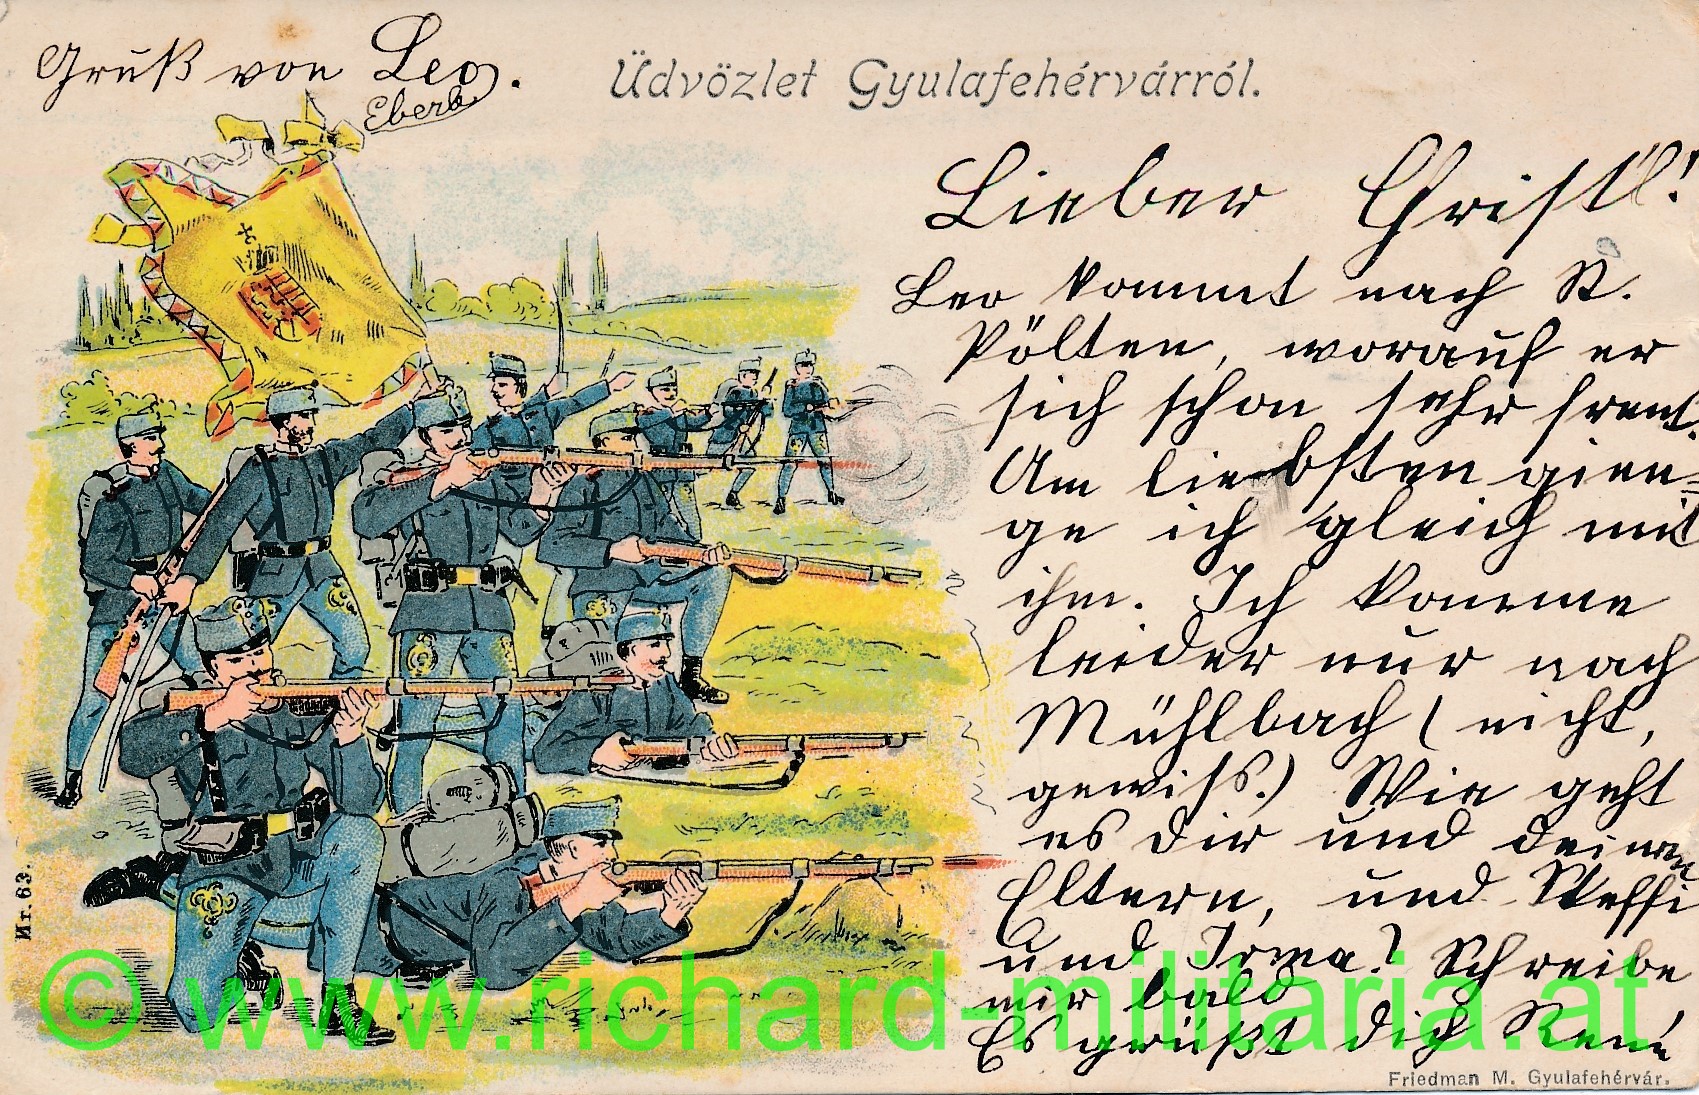 Gruß von Leo.
Eberb
Üdvözlet Gyulafehérvárról.
Lieber Christl!
Leo kommt nach St.
Pölten, worauf er
sich schon sehr freut.
Am liebsten gien=
ge ich gleich mit
ihm. Ich komme
leider nur nach
Mühlbach (nicht,
gewiß.) Wie geht
es dir und deinen
Eltern, und Steffi
und Irma? Schreibe
mir bald
Es grüßt dich René
Nr. 63.
© www.richard-militaria.at
Friedman M. Gyulafehérvár.